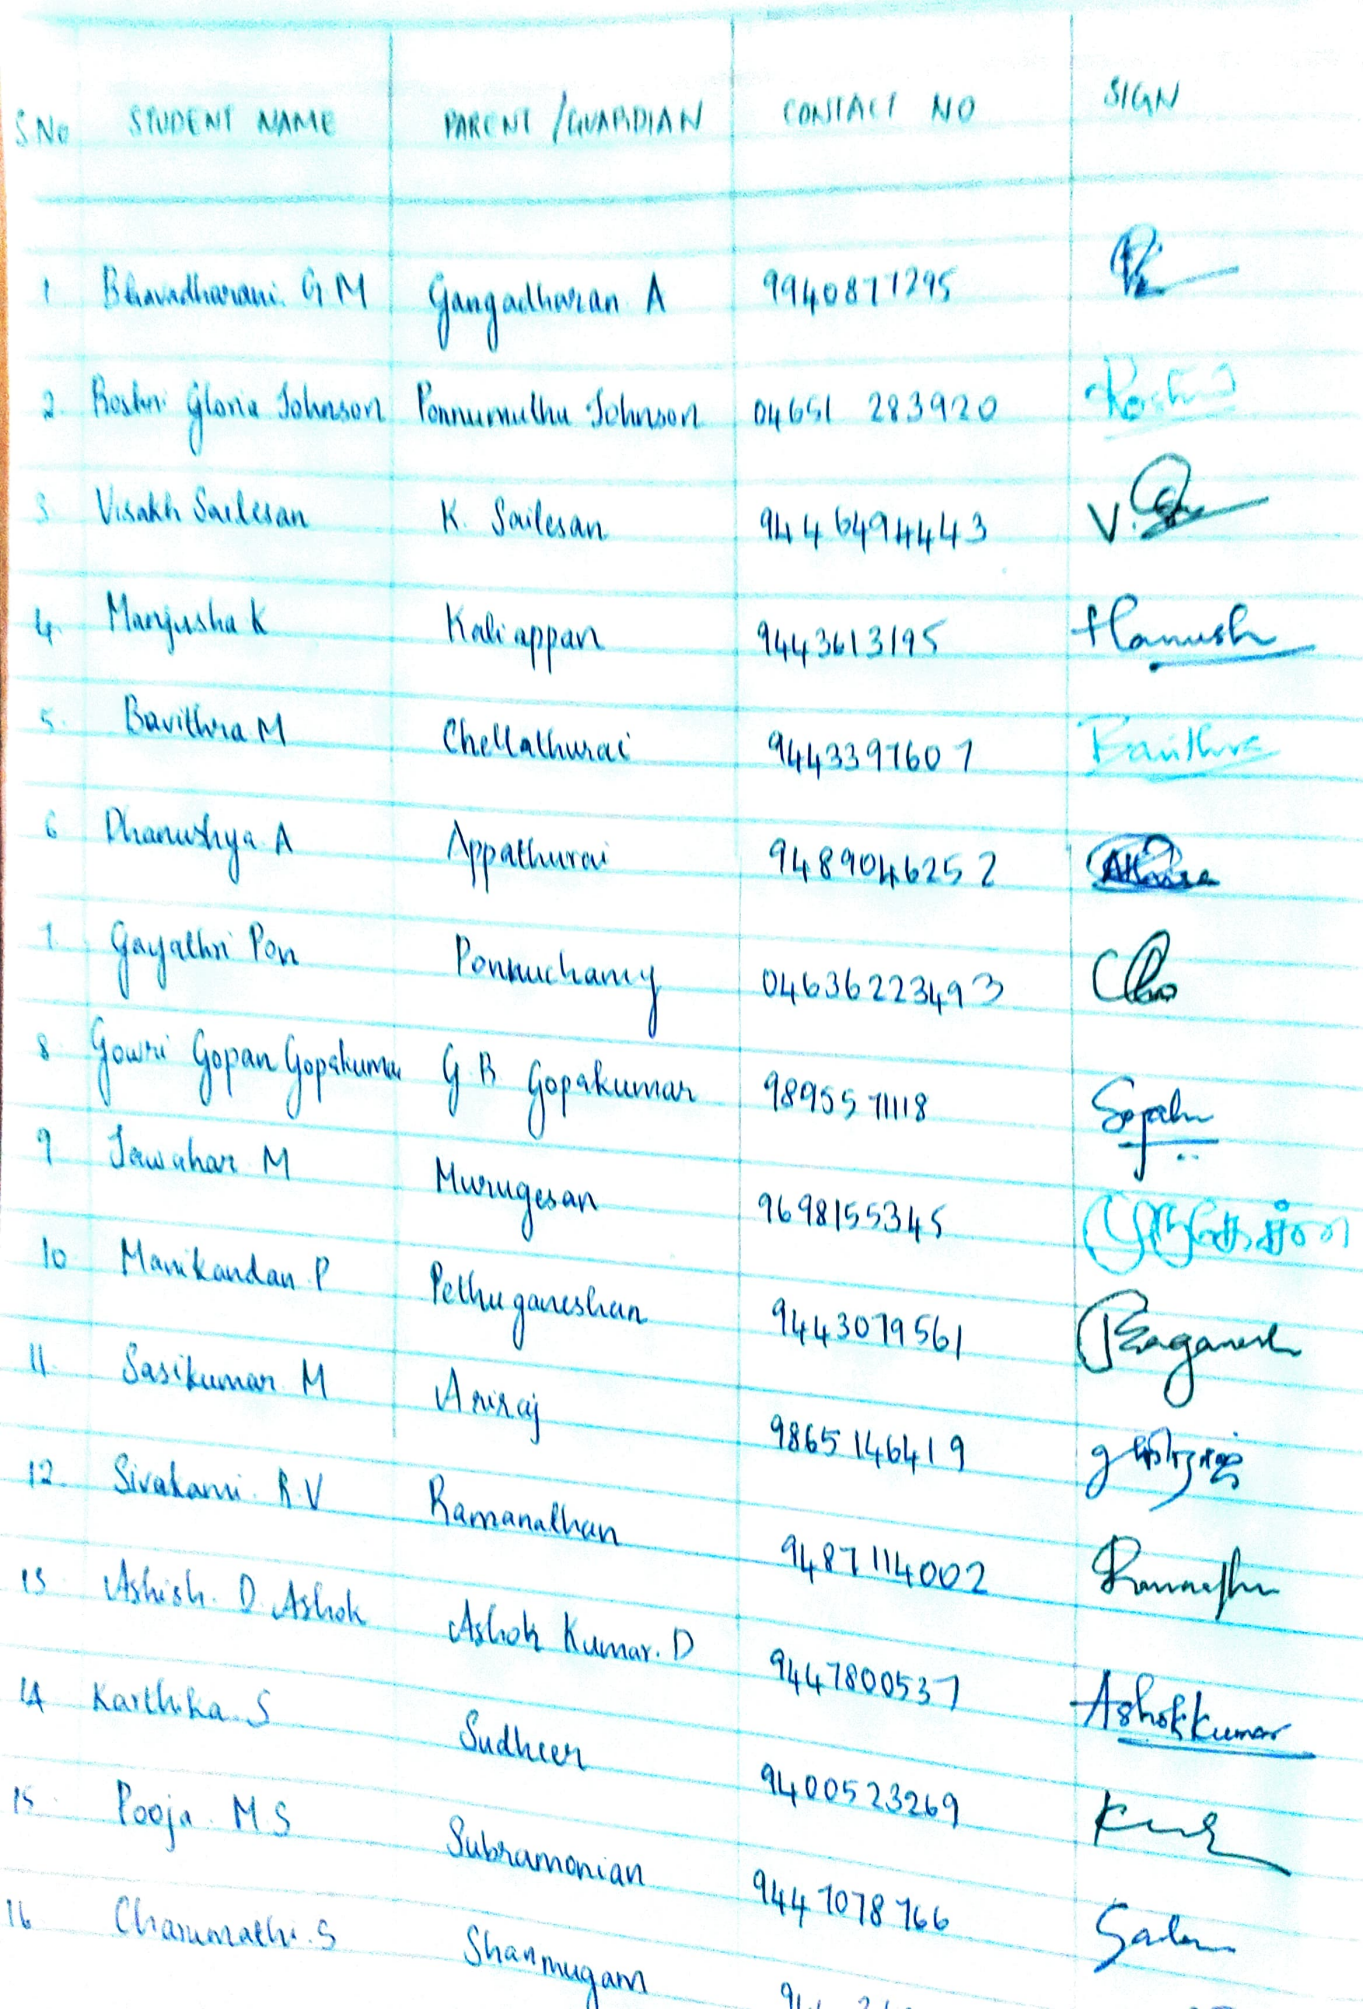 S.NO STUDENT NAME PARENT /GUARDIAN CONTACT NO SIGN
1 Bhavadharani G M Gangadharan A 9940877295
2. Roshni Gloria Johnson Ponnumuthu Johnson 04651 283920 Roshni
3 Visakh Sailesan K. Sailesan 9446494443 V.
4. Manjusha K Kaliappan 9443613195
5. Bavithra M Chellathurai 9443397607 Bavithra
6 Dhanushya A Appathurai 9489046252
7. Gayathri Pon Ponnuchamy 04636223493
8 Gowri Gopan Gopakumar G B Gopakumar 9895571118
9 Jawahar M Murugesan 9698155345 முருகேசன்
10 Manikandan P Pethuganeshan 9443079561
11. Sasikumar M 9865146419
12. Sivakami. R.V Ramanathan 9487114002
13 Ashish. D. Ashok Ashok Kumar. D 9447800537 Ashokkumar
14 Karthika. S Sudheer 9400523269
15. Pooja. M S Subramonian 9447078766
16 Charumathi. S Shanmugam